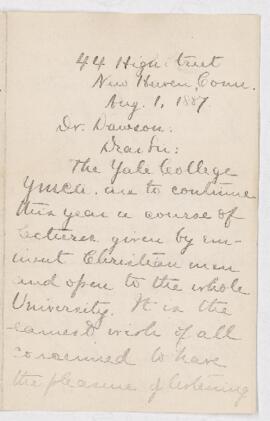 44 High street
New Haven, Conn.
Aug. 1, 1887.
Dr. Dawson:
Dear Sir:
The Yale College
YMCA. are to continue
this year a course of
lectures given by em-
inent Christian men
and open to the whole
University. It is the
earnest wish of all
concerned to have
the pleasure of listening